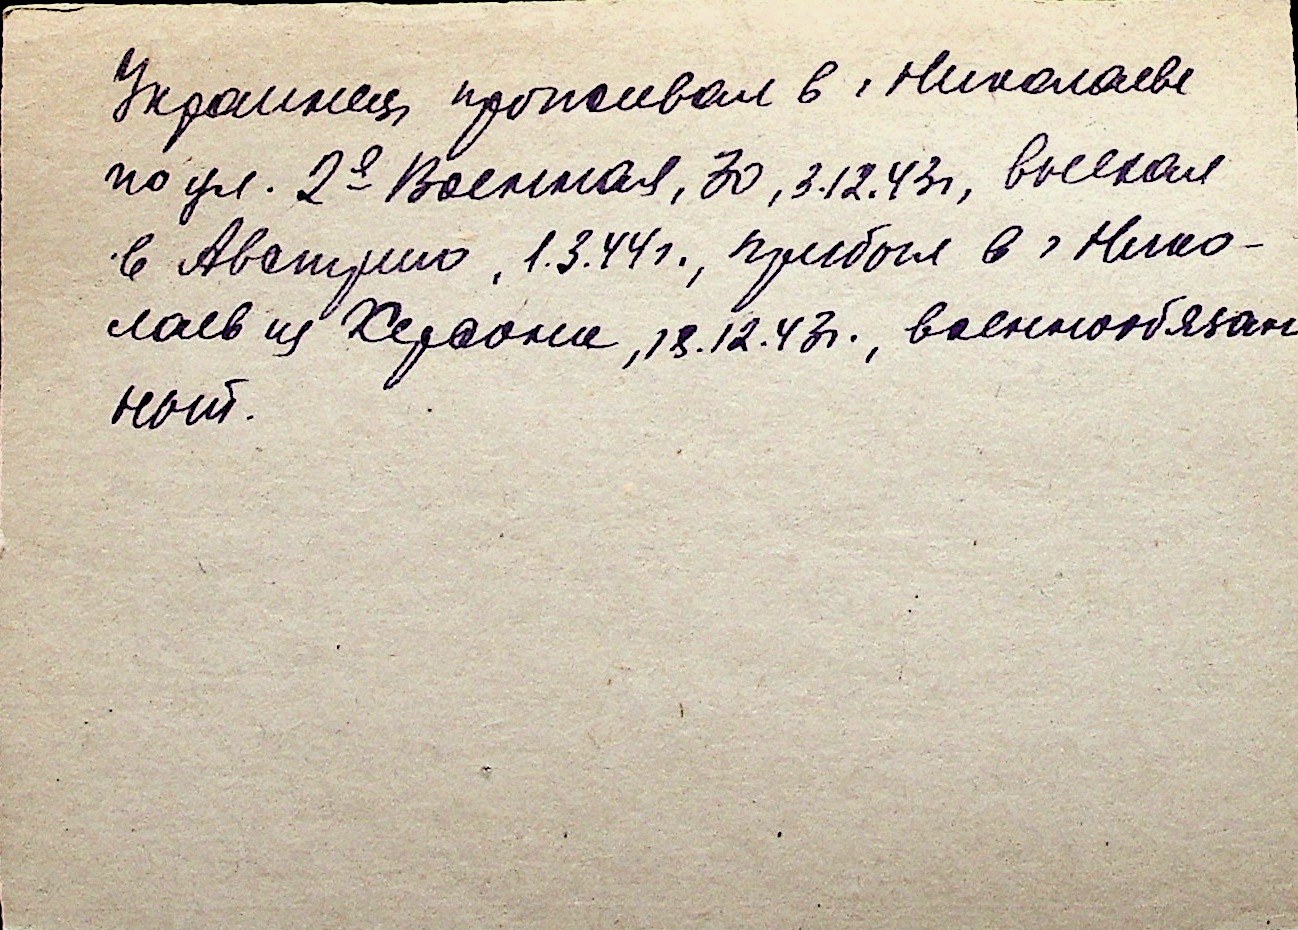 Украинец проживал в г Николаеве
по ул. 2я Военная, 30, 3.12.43г, выехал
в Австрию, 1.3.44г., прибыл в г Нико-
лаев из Херсона, 13.12.43г., военнообязан
ный.